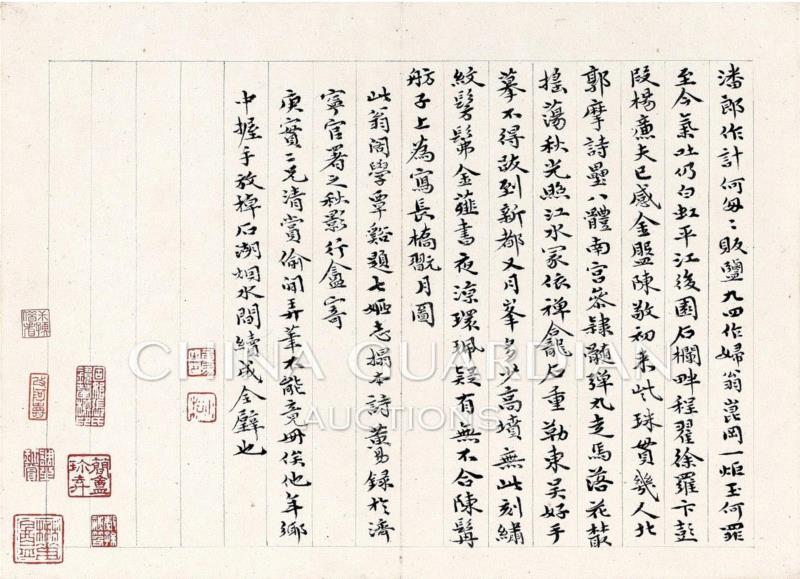 潘郎作計何匆〻販鹽九四作婦翁崑岡一炬玉何罪
至今氣吐仍白虹平江後園石欄畔程翟徐羅卞彭
段楊廉夫已感金盌陳敬初來此珠貫幾人北
郭摩詩壘八體南宮參隸髓彈丸走馬落花叢
搖蕩秋光照江水冢依禪龕片石重勒東吳好手
摹不得跋到新都又月峯多少高墳無此刻繡
紋髣髴金薤書夜涼環珮疑有無不合陳髯
舫子上為寫長橋翫月圖
此翁閣學覃谿題七姬志搨本詩黃易錄於濟
寧官署之秋影行盦寄
庚實二兄清賞偷閒弄筆不能竟冊俟他年鄉
中握手放棹石湖烟水間續成全璧也
簡盦珍弆
CHINA GUARDIAN
AUCTIONS